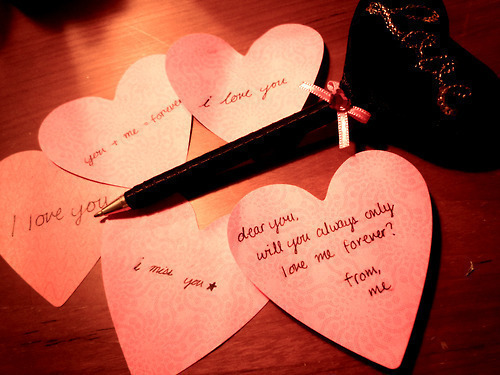 Love
i love you
you + me = forever
I love you
i miss you★
dear you,
will you always only
love me forever?
from,
me